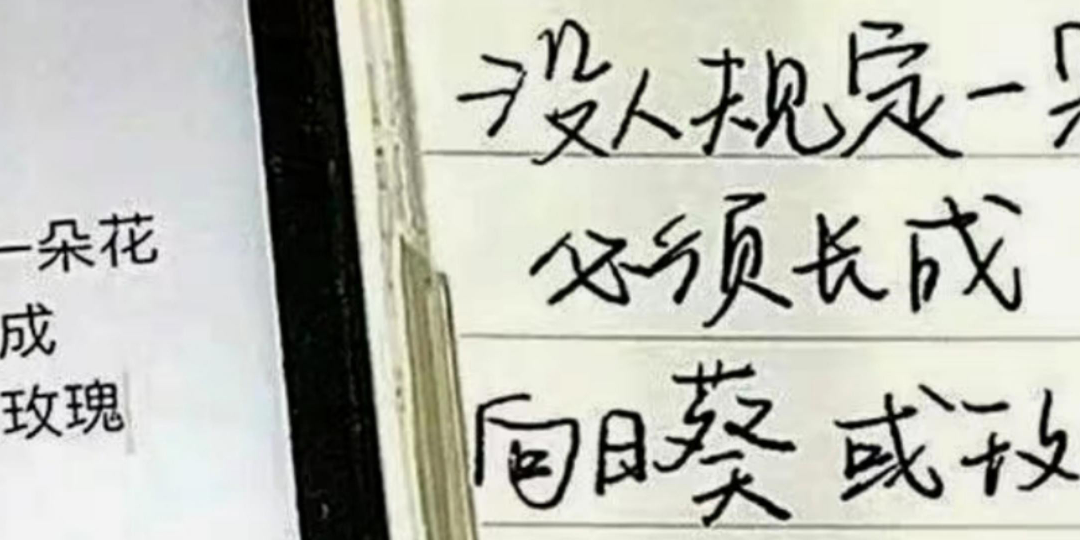 一朵花
成
玫瑰
没人规定一
必须长成
向日葵或玫